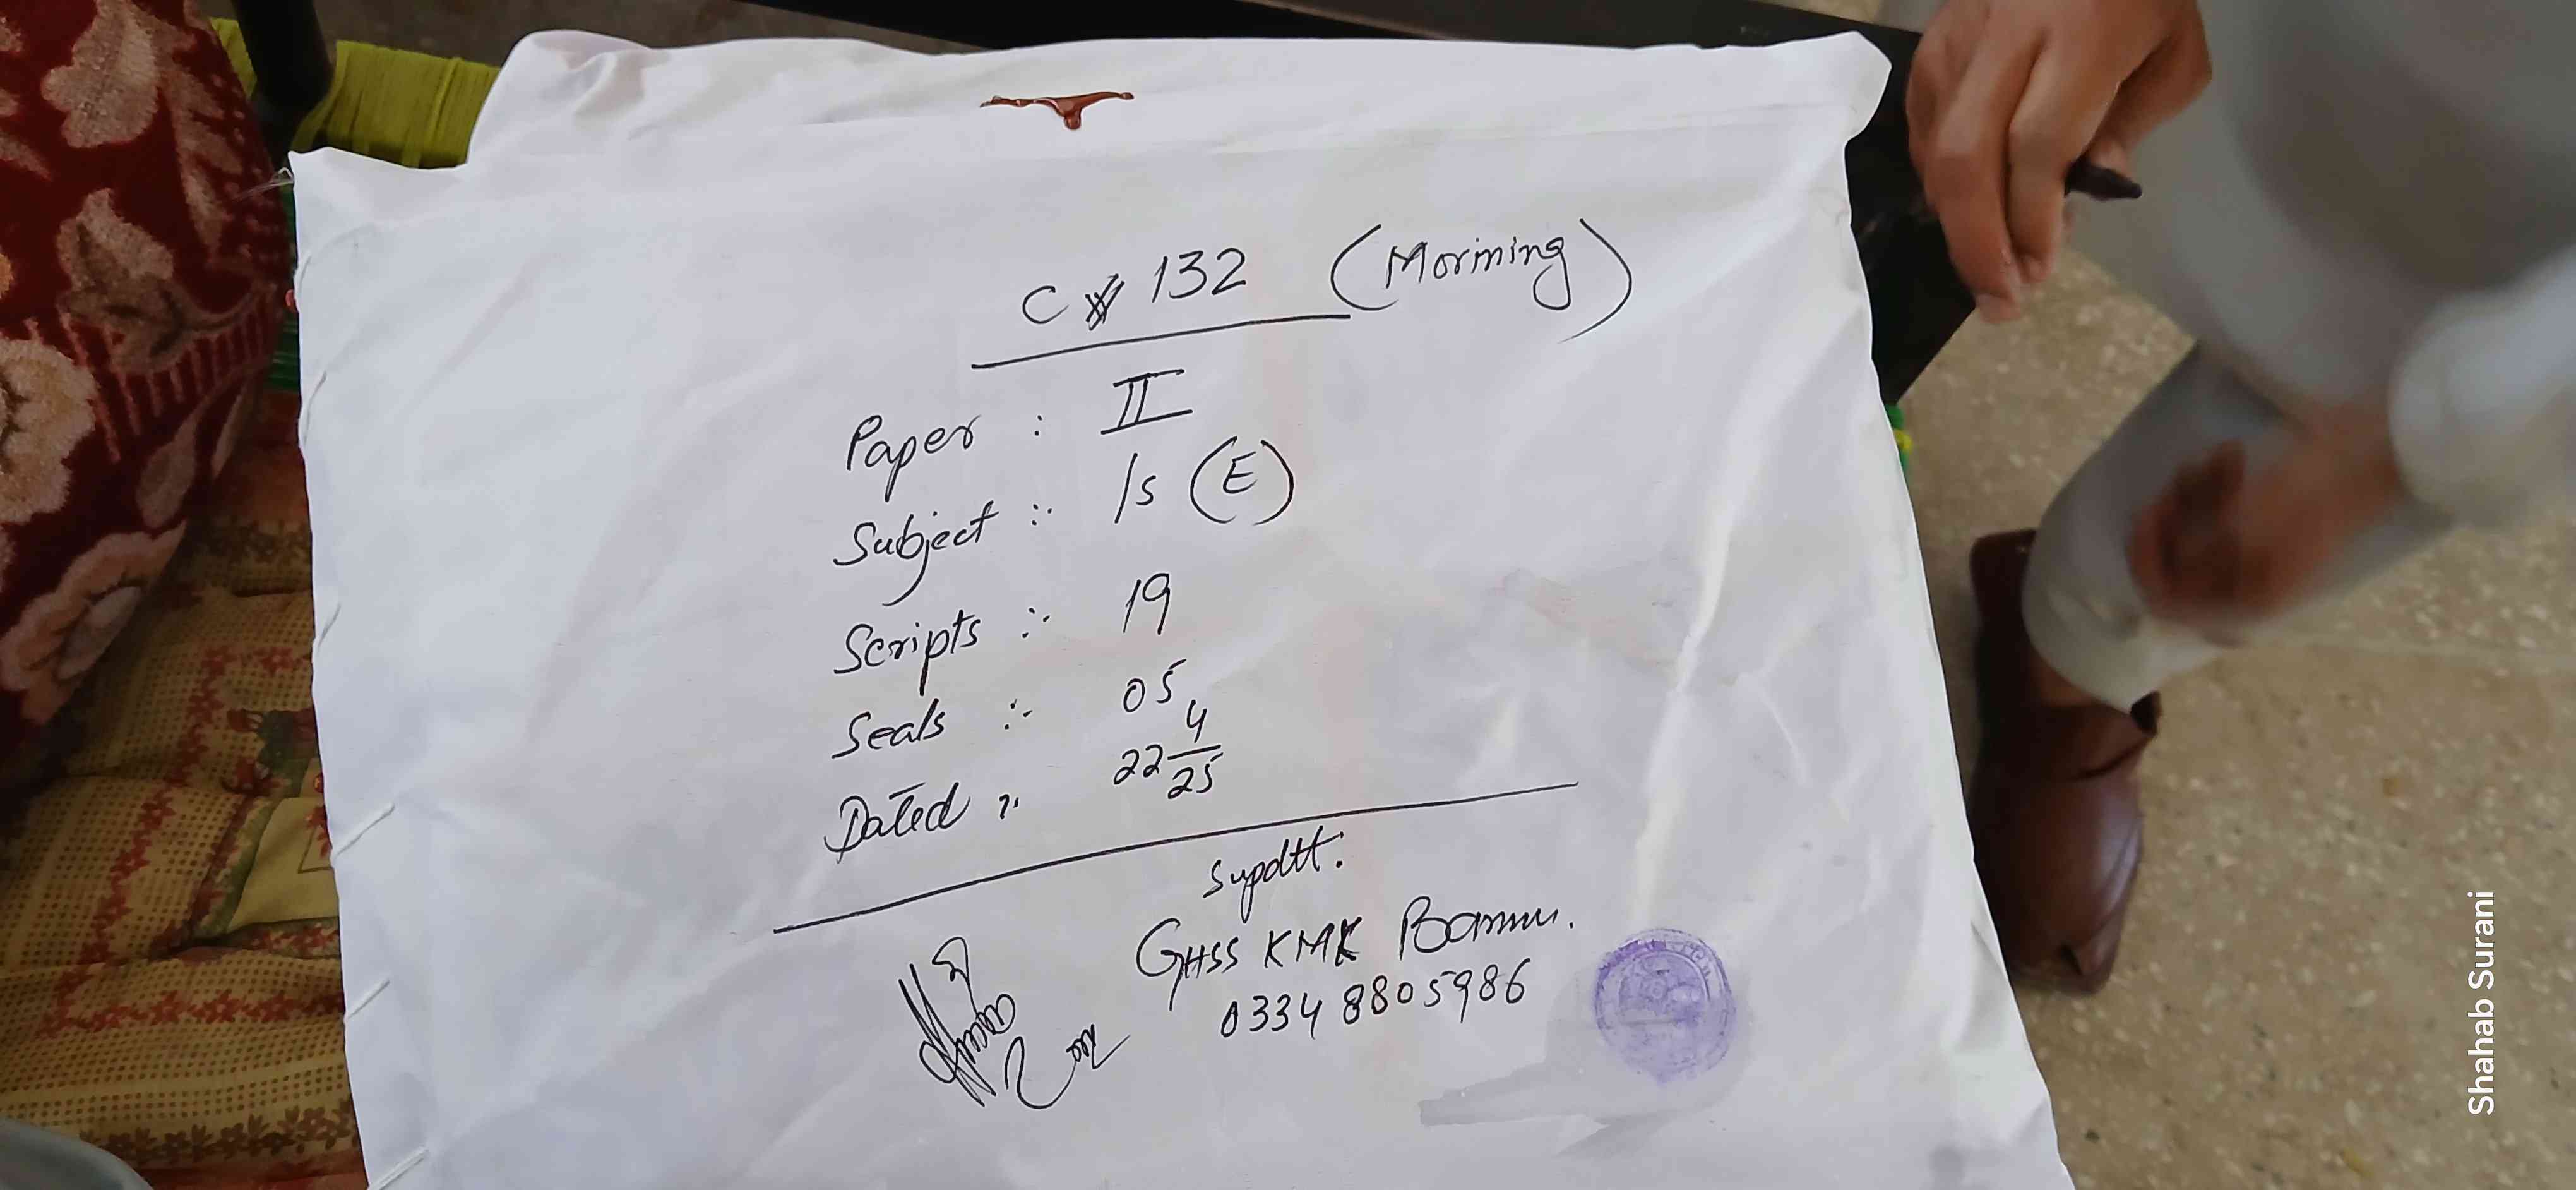 C # 132 (Morining)
Paper : II
Subject :- Is (E)
Scripts :- 19
Seals :- 05
Dated :- 22 4/25
Supdtt.
GHSS KMK Bannu.
0334 8805986
Shahab Surani